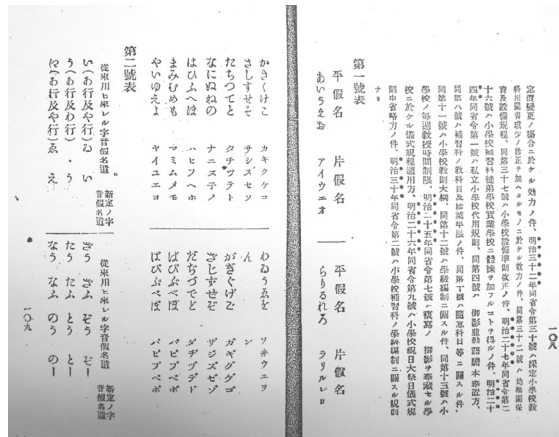 一〇八
定價變更ノ場合ニ於ケル効力ノ件、明治三十一年同省令第三十號ハ檢定小學校教
科用圖書種少ノ修正ヲ加ヘタルモノニ於ケル効力ノ件、同第三十二號ハ幼稚園保
育及設備規程、同第三十七號ハ小學校設備準則改正ノ件、明治二十七年同省令第二
十六號ハ小學校補習科徒弟學校實業學校ニ體操ヲ加フルコトヲ得ルノ件、明治二十
四年同省令第一號ハ私立小學校代用規則、同第四號ハ 御影並勅語謄本奉置方、
同第八號ハ補習科ノ教科目及修業年限ノ件、同第十號ハ隨意科目等ニ關スル件、
同第十一號ハ小學校教則大綱、同第十二號ハ學級編制ニ關スル件、同第十三號ハ小
學校ノ毎週教授時間制限、明治二十五年同省令第七號ハ複寫ノ 御影ヲ奉藏セル學
校ニ於ケル儀式規程適用方、明治二十六年同省令第九號ハ小學校祝日大祭日儀式規
則中省略方ノ件、明治三十年同省令第二號ハ小學校補習科ノ學級編制ニ關スル規則
ナリ
第一號表
平假名 片假名 平假名 片假名
あいうえお アイウエオ らりるれろ ラリルレロ
かきくけこ カキクケコ わゐうゑを ワヰウヱヲ
さしすせそ サシスセソ ん ン
たちつてと タチツテト がぎぐげご ガギグゲゴ
なにぬねの ナニヌネノ ざじずぜぞ ザジズゼゾ
はひふへほ ハヒフヘホ だぢづでど ダヂヅデド
まみむめも マミムメモ ばびぶべぼ バビブベボ
やいゆえよ ヤイユエヨ ぱぴぷぺぽ パピプペポ
第二號表
從來用ヒ來レル字音假名遣 新定ノ字音假名遣 從來用ヒ來レル字音假名遣 新定ノ字音假名遣
い(あ行及や行)ゐ い さう さふ そう そー
う(あ行及わ行) う たう たふ とう とー
え(あ行及や行)ゑ え なう なふ のう のー
一〇九